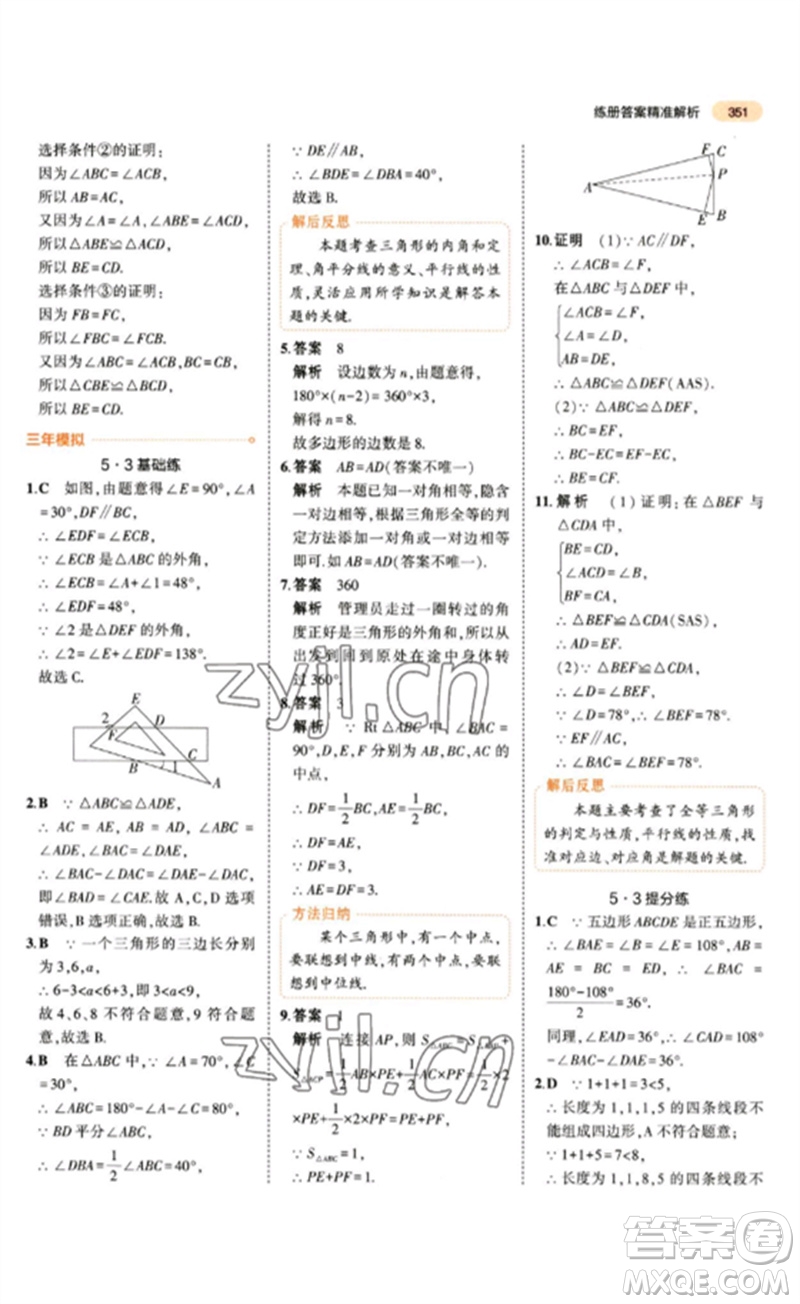 练册答案精准解析 351
选择条件②的证明：
因为∠ABC=∠ACB，
所以 AB=AC，
又因为∠A=∠A，∠ABE=∠ACD，
所以△ABE≌△ACD，
所以 BE=CD.
选择条件③的证明：
因为 FB=FC，
所以∠FBC=∠FCB.
又因为∠ABC=∠ACB，BC=CB，
所以△CBE≌△BCD，
所以 BE=CD.
三年模拟
5·3基础练
1.C 如图，由题意得∠E=90°，∠A
=30°，DF∥BC，
∴∠EDF=∠ECB，
∵∠ECB 是△ABC 的外角，
∴∠ECB=∠A+∠1=48°，
∴∠EDF=48°，
∵∠2 是△DEF 的外角，
∴∠2=∠E+∠EDF=138°.
故选 C.
E
2
D
F
C
B
1
A
2.B ∵△ABC≌△ADE，
∴AC=AE，AB=AD，∠ABC=
∠ADE，∠BAC=∠DAE，
∴∠BAC-∠DAC=∠DAE-∠DAC，
即∠BAD=∠CAE.故 A，C，D 选项
错误，B 选项正确，故选 B.
3.B ∵一个三角形的三边长分别
为 3,6,a，
∴6-3<a<6+3，即 3<a<9，
故 4,6,8 不符合题意，9 符合题
意，故选 B.
4.B 在△ABC 中，∵∠A=70°，∠C
=30°，
∴∠ABC=180°-∠A-∠C=80°，
∵BD 平分∠ABC，
∴∠DBA=1/2∠ABC=40°，
∵DE∥AB，
∴∠BDE=∠DBA=40°，
故选 B.
解后反思
本题考查三角形的内角和定
理、角平分线的意义、平行线的性
质，灵活应用所学知识是解答本
题的关键.
5.答案 8
解析 设边数为 n，由题意得，
180°×(n-2)=360°×3，
解得 n=8.
故多边形的边数是 8.
6.答案 AB=AD(答案不唯一)
解析 本题已知一对角相等，隐含
一对边相等，根据三角形全等的判
定方法添加一对角或一对边对应
相等即可.如 AB=AD(答案不唯一).
7.答案 360
解析 管理员走过一圈转过的角
度正好是三角形的外角和，所以从
出发到回到原处在途中身体转
过 360°.
8.答案 3
解析 ∵Rt△ABC 中，∠BAC=
90°，D,E,F 分别为 AB,BC,AC 的
中点，
∴DF=1/2BC，AE=1/2BC，
∴DF=AE，
∵DF=3，
∴AE=DF=3.
方法归纳
某个三角形中，有一个中点，
要联想到中线，有两个中点，要联
想到中位线.
9.答案 1
解析 连接 AP，则 S△ABC=S△ABP+
S△ACP=1/2AB×PE+1/2AC×PF=1/2×2
×PE+1/2×2×PF=PE+PF，
∵S△ABC=1，
∴PE+PF=1.
E
C
P
A
F
B
10.证明 (1)∵AC∥DF，
∴∠ACB=∠F，
在△ABC 与△DEF 中，
∠ACB=∠F，
∠A=∠D，
AB=DE，
∴△ABC≌△DEF(AAS).
(2)∵△ABC≌△DEF，
∴BC=EF，
∴BC-EC=EF-EC，
∴BE=CF.
11.解析 (1)证明：在△BEF 与
△CDA 中，
BE=CD，
∠B=∠1，
BF=CA，
∴△BEF≌△CDA(SAS).
(2)∵△BEF≌△CDA，
∴∠D=∠2，
∵∠D=78°，∴∠BEF=78°.
∵EF∥AC，
∴∠BAC=∠BEF=78°.
解后反思
本题主要考查了全等三角形
的判定与性质，平行线的性质，找
准对应边、对应角是解题的关键.
5·3提分练
1.C ∵五边形 ABCDE 是正五边形，
∴∠BAE=∠B=∠E=108°，AB=
BC=AE=DE，∴∠BAC=
(180°-108°)/2=36°.
同理，∠EAD=36°，∴∠CAD=
108°-36°-36°=36°.
2.D ∵1+1+1=3<5，
∴长度为 1,1,1,5 的四条线段不
能组成四边形，A 不符合题意；
∵1+1+5=7<8，
∴长度为 1,1,8,5 的四条线段不
zyjl.cn
zyjl.cn
答案圈
MXQE.COM